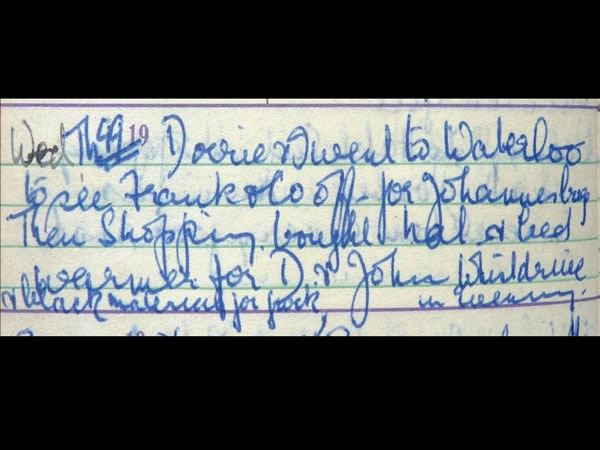 Wed Th 19 Dorrie & I went to Waterloo
to see Frank & Lo off - for Johannesbrg
Then Shopping, bought hat & bed
warmer for D. & John Whistdrive
& black material for frock, in evening.